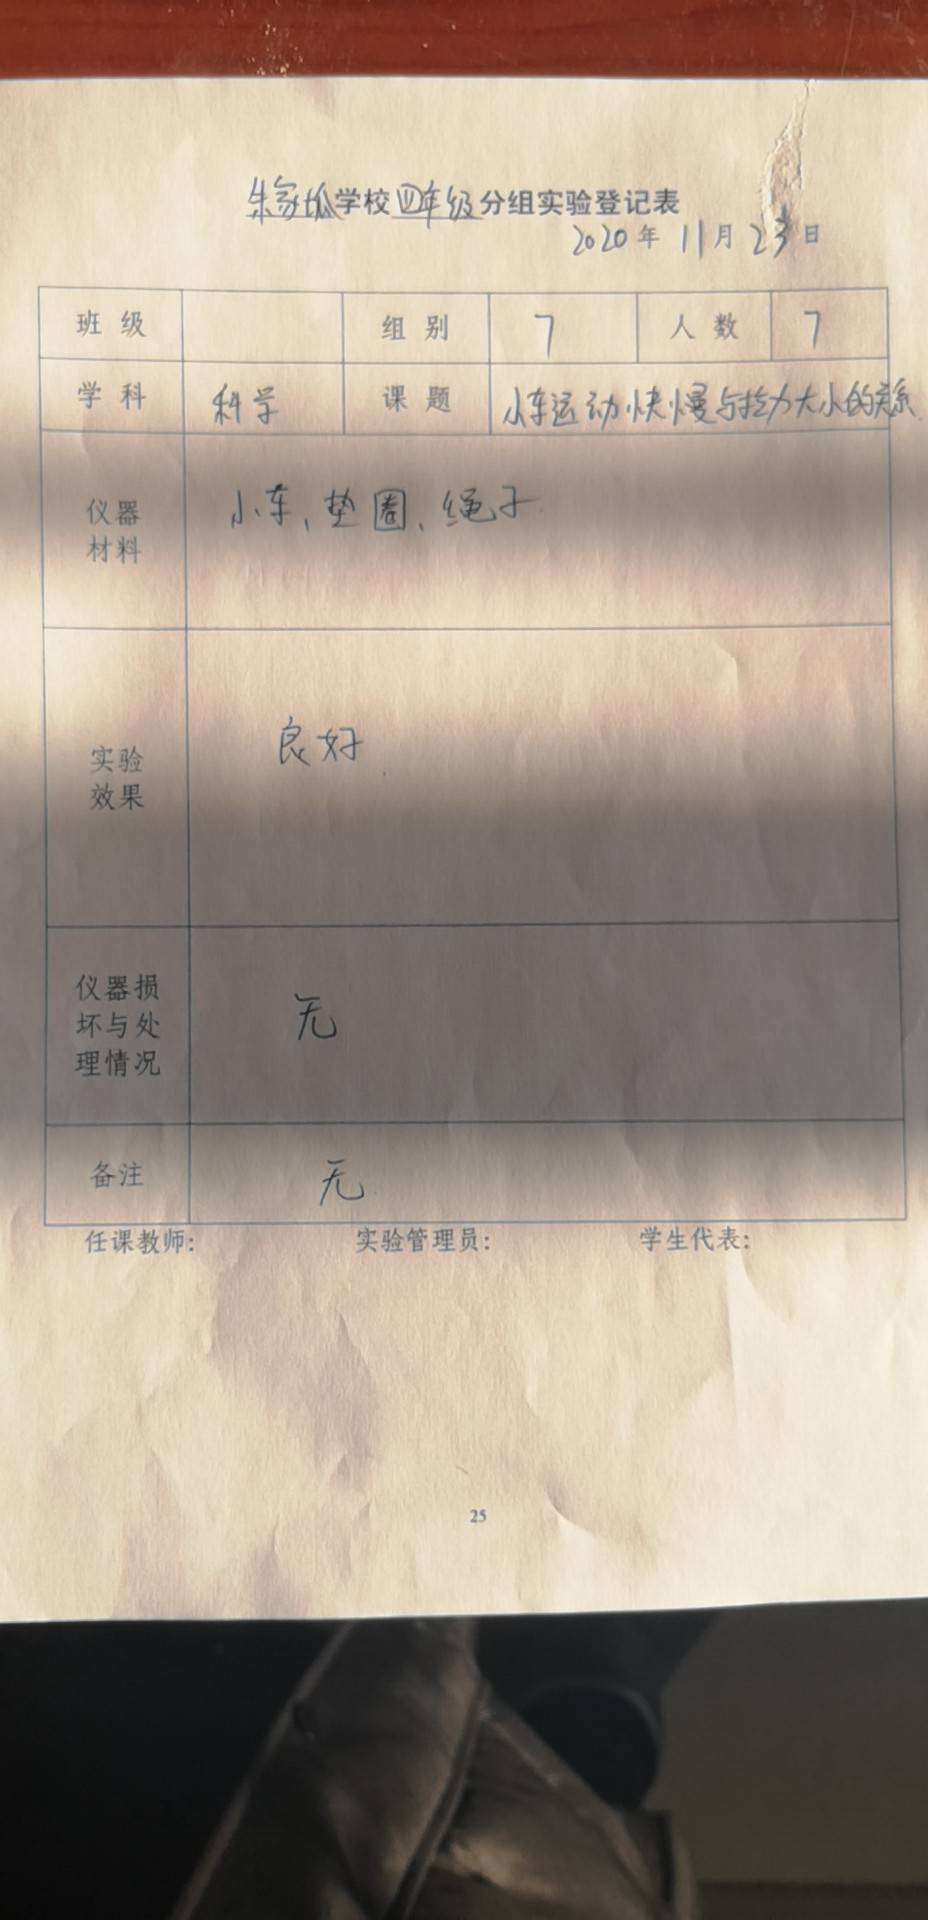 朱家坬学校四年级分组实验登记表
2020年11月23日
班级 组别 7 人数 7
学科 科学 课题 小车运动快慢与拉力大小的关系
仪器材料 小车、垫圈、绳子
实验效果 良好
仪器损坏与处理情况 无
备注 无
任课教师: 实验管理员: 学生代表:
25